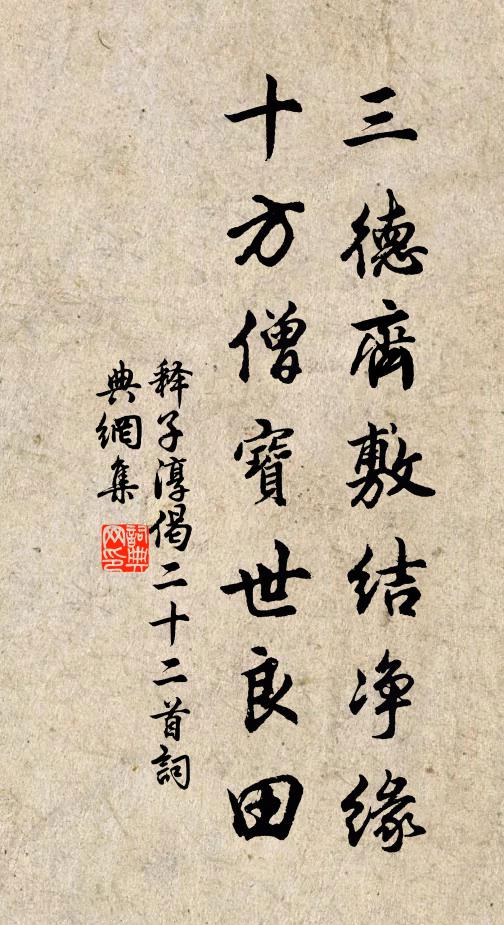 三德齊敷結净緣
十方僧寶世良田
释子淳偈二十二首詞
典網集
詞典
网印